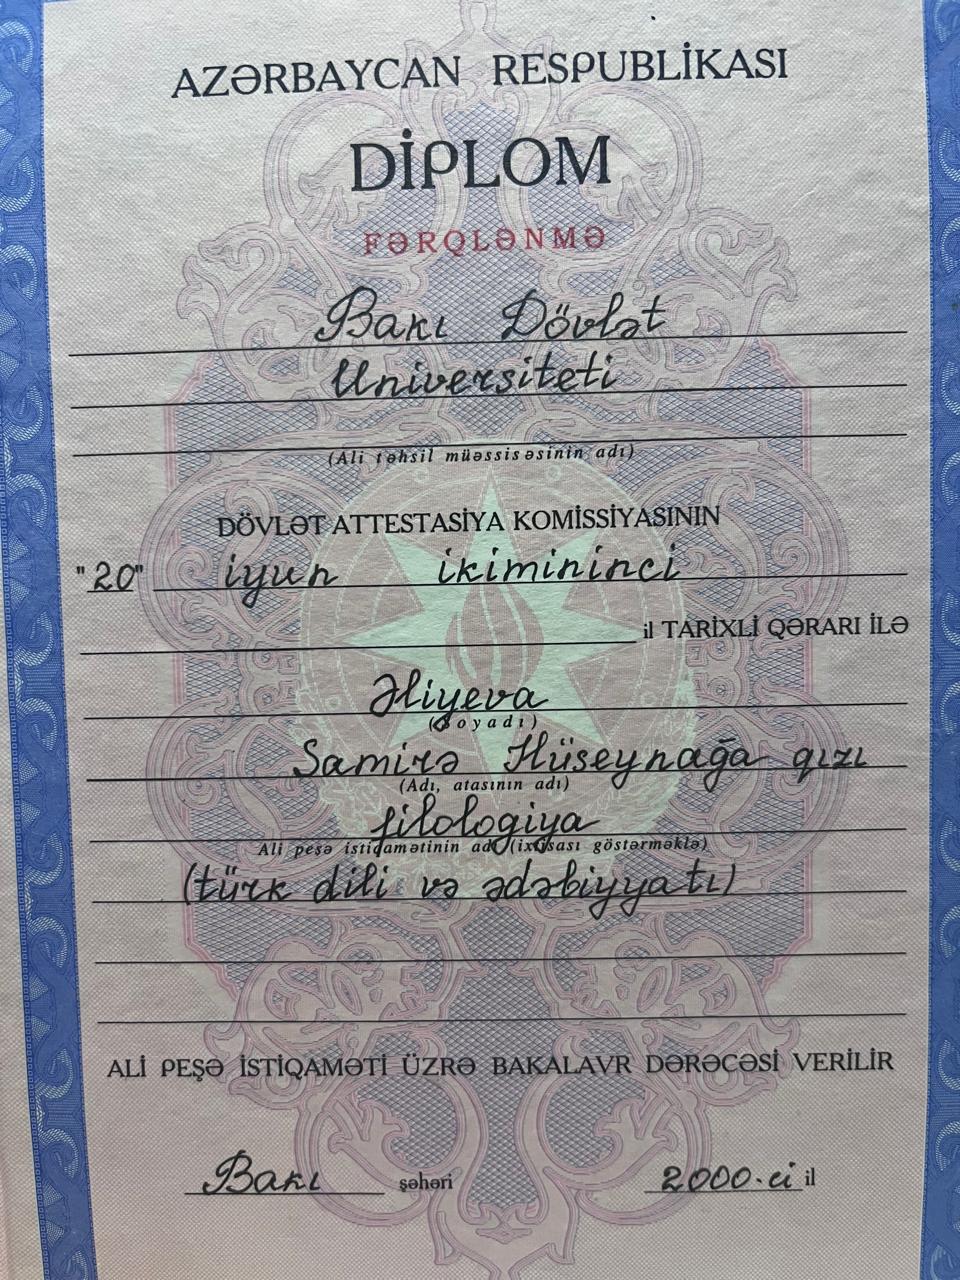 AZƏRBAYCAN RESPUBLİKASI
DİPLOM
FƏRQLƏNMƏ
Bakı Dövlət
Universiteti
(Ali təhsil müəssisəsinin adı)
DÖVLƏT ATTESTASİYA KOMİSSİYASININ
"20" iyun ikimininci
il TARİXLİ QƏRARI İLƏ
Əliyeva
(Soyadı)
Samirə Hüseynağa qızı
(Adı, atasının adı)
filologiya
Ali peşə istiqamətinin adı (ixtisası göstərməklə)
(türk dili və ədəbiyyatı)
ALİ PEŞƏ İSTİQAMƏTİ ÜZRƏ BAKALAVR DƏRƏCƏSİ VERİLİR
Bakı şəhəri 2000-ci il